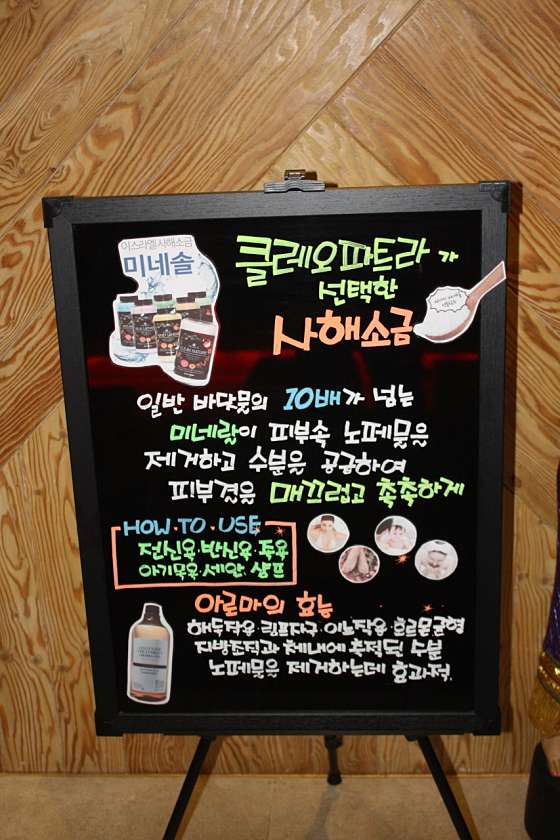 이스라엘 사해소금
미네솔
클레오파트라가
선택한
사해소금
일반 바닷물의 10배가 넘는
미네랄이 피부속 노폐물을
제거하고 수분을 공급하여
피부결을 매끄럽고 촉촉하게
HOW·TO·USE
전신욕·반신욕·족욕
아기목욕·세안·샴푸
아로마의 효능
해독작용·림프자극·이뇨작용·호르몬균형
지방조직과 체내에 축적된 수분
노폐물을 제거하는데 효과적.